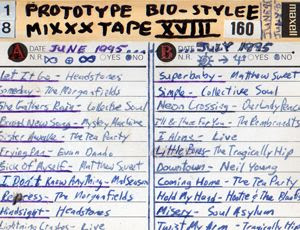 1
8
PROTOTYPE BIO-STYLEE
MIXXX TAPE XVIII
160
maxell
A
DATE JUNE 1995...
B
DATE JULY 1995
Let It Go - Headstones
Someday - The Morganfields
She Gathers Rain - Collective Soul
Brand New Song - Mystery Machine
Sister Awake - The Tea Party
Frying Pan - Evan Dando
Sick Of Myself - Matthew Sweet
I Don't Know Anything - Mad Season
The Morganfields
Hindsight - Headstones
Lightning Crashes - Live
Superbaby - Matthew Sweet
Simple - Collective Soul
Neon Crossing - Our Lady Peace
I'll Be There For You - The Rembrandts
I Alone - Live
Little Bones - The Tragically Hip
Downtown - Neil Young
Coming Home - The Tea Party
Hold My Hand - Hootie & The Blowfish
Misery - Soul Asylum
Twist My Arm - Tragically